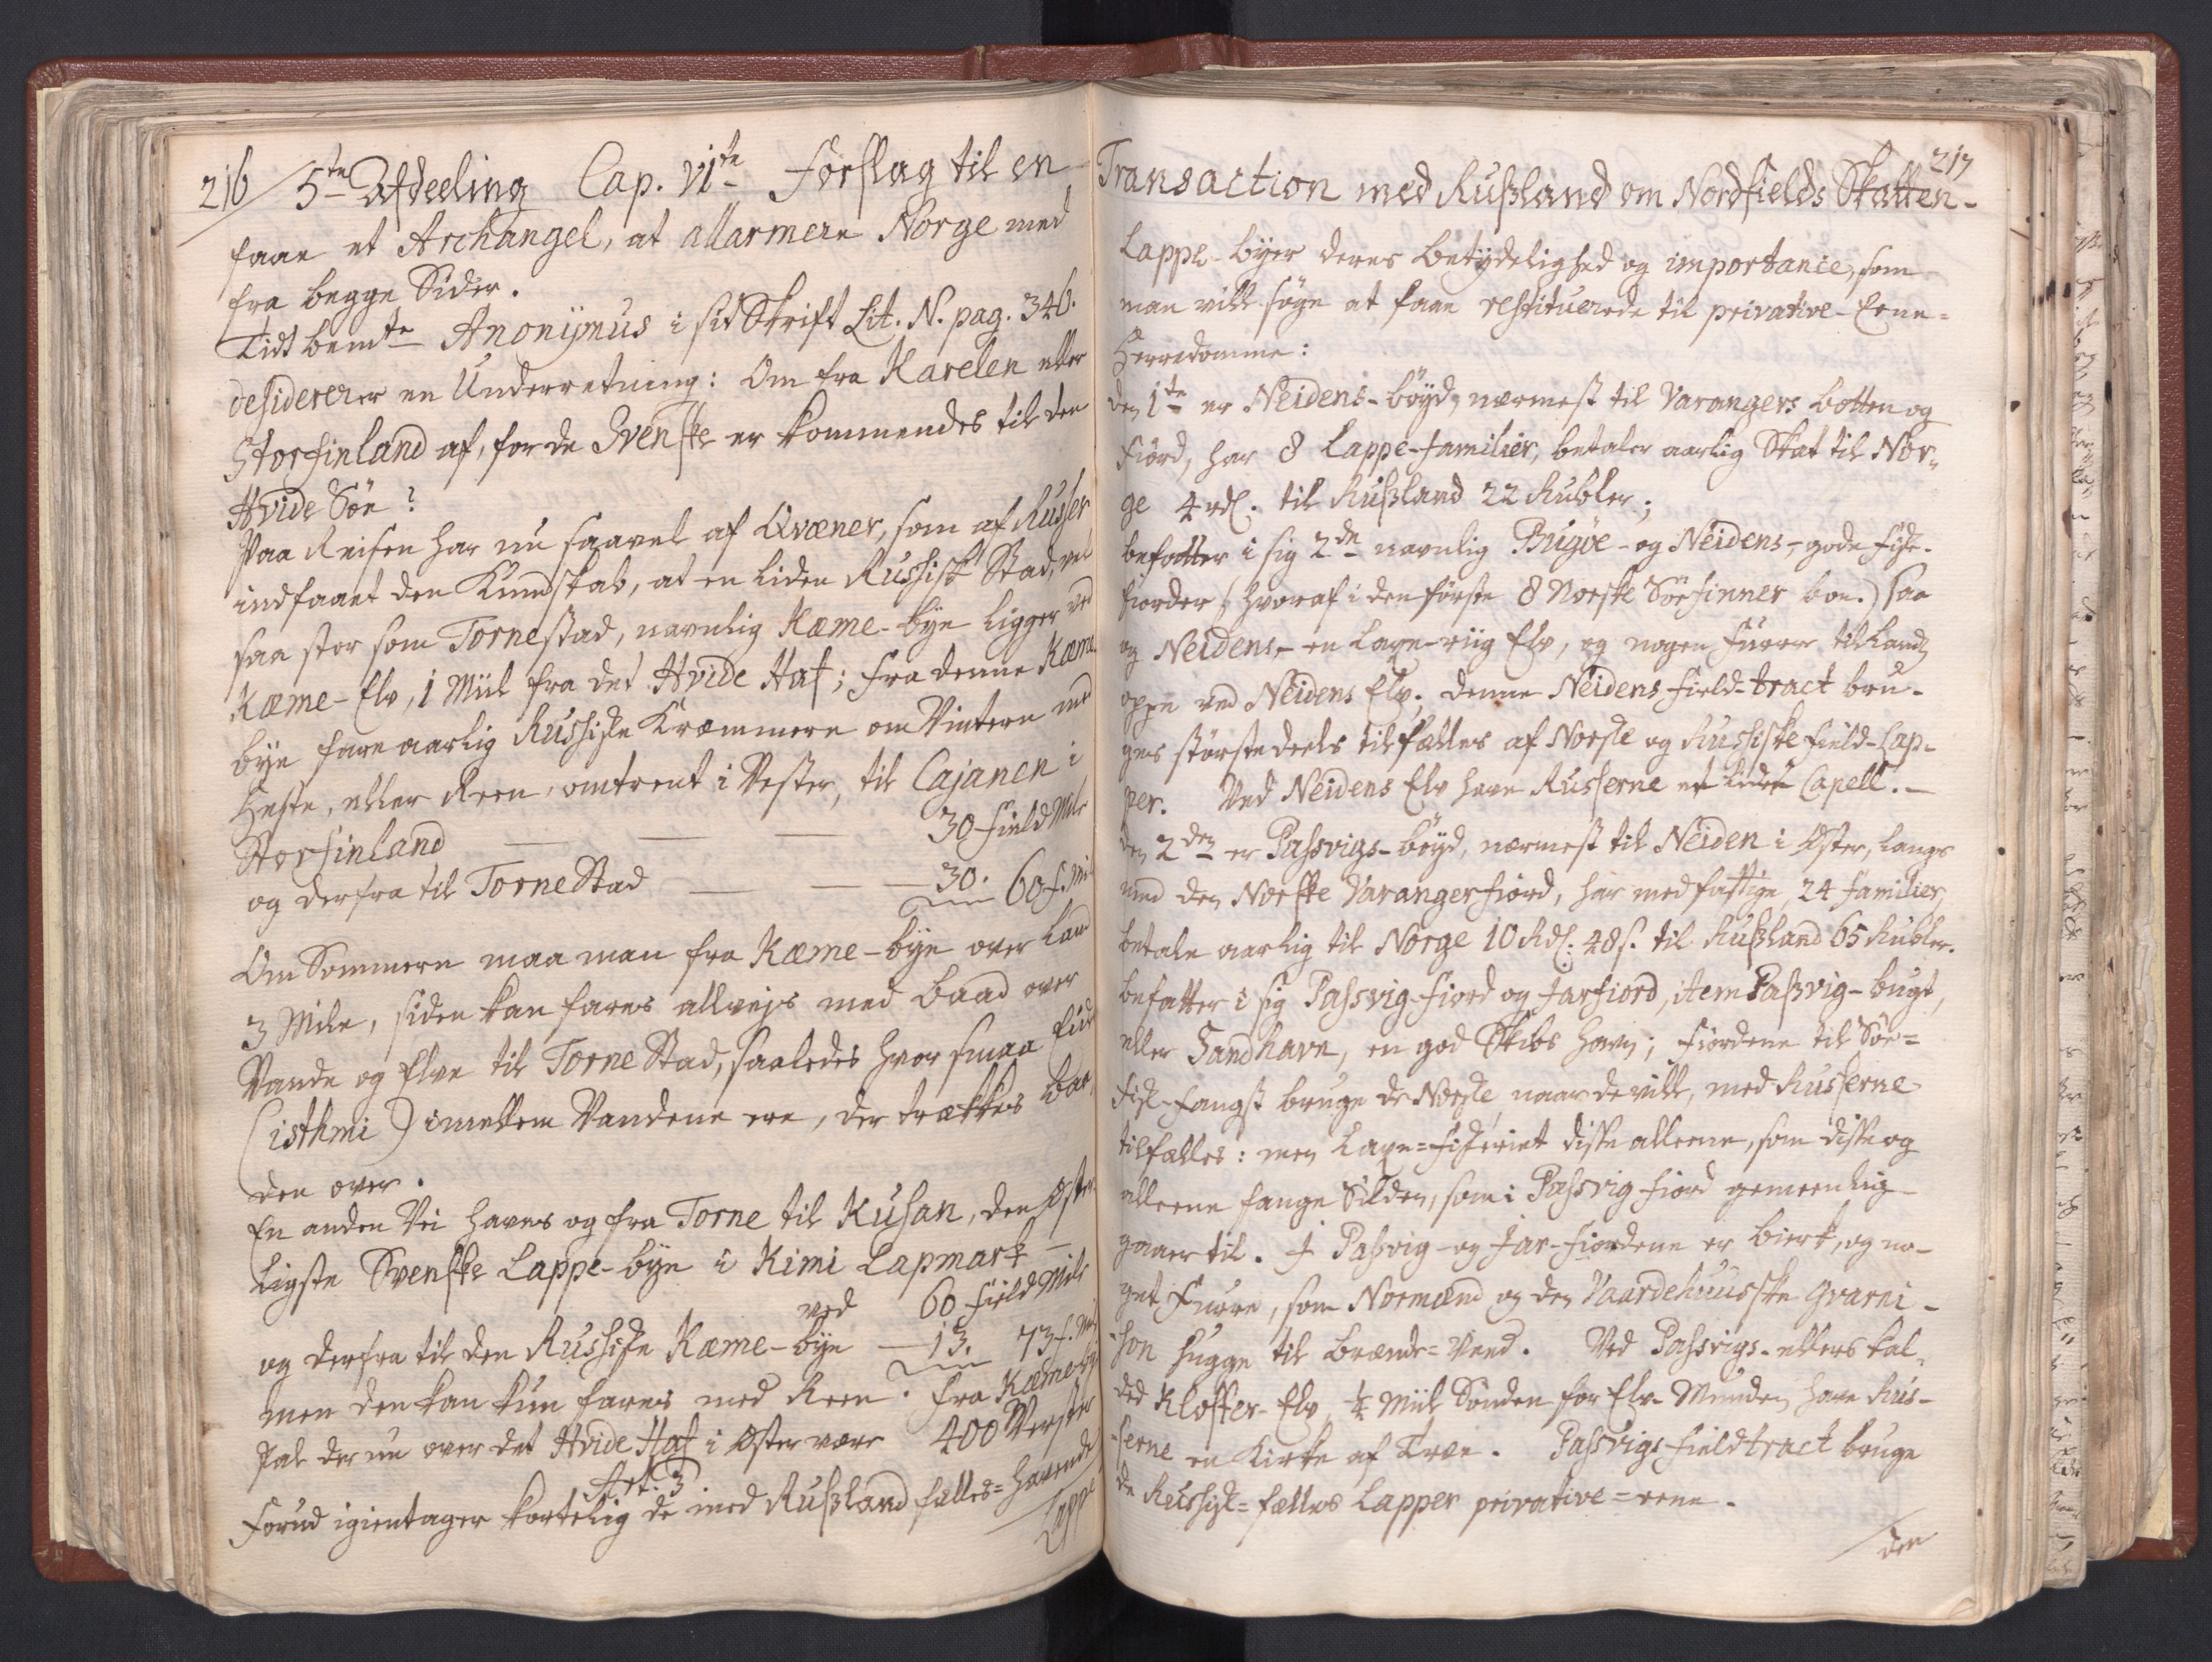 216 5te Afdeeling Cap. VIte Forslag til en
faae et Archangel, at allarmere Norge med
fra begge Sider.
Tidtbemte Anonÿmus i sit Skrift Lit. N. pag. 346.
desidererer en Underretning: Om fra Karelen eller
Storfinland af, for de Svenske er kommendes til den
Hvide Söe?
Paa Reisen har nu saavel af Qvæner, som af Russer
indfaaet den Kundskab, at en liden Russisk Stad, vel
saa stor som Tornestad, navnlig Kæme-bÿe ligger ved
Kæme-Elv, 1 Miil fra det Hvide Haf; fra denne Kæme
bÿe fare aarlig Russiske Kræmmere om Vinteren med
Heste, eller Reen, omtrent i Vester, til Cajanen i
Storfinland — — — 30 Field Mile
og derfra til Torne Stad — — — 30. 60 f. Mil
Om Sommeren maa man fra Kæme-bÿe over Land
3 Mile, siden kan fares allvejs med baad over
Vande og Elve til Torne Stad, saaledes hvor smaa Eide
(isthmi) imellem Vandene ere, der trækkes baa,
den over.
En anden Vei haves og fra Torne til Kusan, den Øster
ligste Svenske Lappe-bÿe i Kimi Lapmark —
ved 60 Field Mile
og derfra til den Russiske Kæme-bÿe — 13. 73 f. Mil
men den kan kun fares med Reen. Fra Kæmebÿ
skal der nu over det Hvide Haf i Øster være 400 Verster
Art. 3
Forud igientager kortelig de med Rußland fælles-havende
Lappe
217
Transaction med Rußland om Nordfields Skatten-
Lappe-bÿer deres betÿdelighed og importance, som
man ville söge at faae restituerede til privative-Eene-
Herredomme:
den 1te er Neidens-böÿd, nærmest til Varangers botten og
Fiörd, har 8 Lappe-familier, betaler aarlig Skat til Nor-
ge 4 rdl. til Rußland 22 Rubler;
befatter i sig 2de navnlig Bugöe- og Neidens- gode fiske-
fiorder (hvoraf i den förste 8 Norske Söefinner boe.) saa
og Neidens- en Laxe-riig Elv, og nogen Furre til Lands
oppe ved Neidens Elv; denne Neidens field-tract bru-
ges störstedeels tilfælles af Norske og Russiske field-Lap-
per. Ved Neidens Elv have Russerne et lidet Capell. —
den 2den er Passvigs-böÿd, nærmest til Neiden i Øster, langs
med den Norske Varangerfiord, har med fattige, 24 familier,
betale aarlig til Norge 10 Rdl. 48 s. til Rußland 65 Rubler.
befatter i sig Passvig-fiord og Jarfiord, item Paßvig-bugt,
eller Sandhavn, en god Skibs havn; Fiordene til Söe-
fisk-fangst bruge de Norske, naar de ville, med Russerne
tilfælles: men Laxe-fiskeriet disse alleene, som disse og
alleene fange Silden, som i Passvig fiord gemeenlig
gaaer til. I Pasvig- og Jar-fiordene er bierk, og no-
get Furre, som Normænd og den Vaardehuusske Gvarni-
-son hugge til brænde-Veed. Ved Passvigs- ellers kal-
ded Kloster-Elv, 1/4 Miil Sönden for Elv-Munden, have Rus-
-serne en Kirke af Træe. Passvigs-fieldtract bruge
de Russisk-fælles Lapper privative-eene.
den